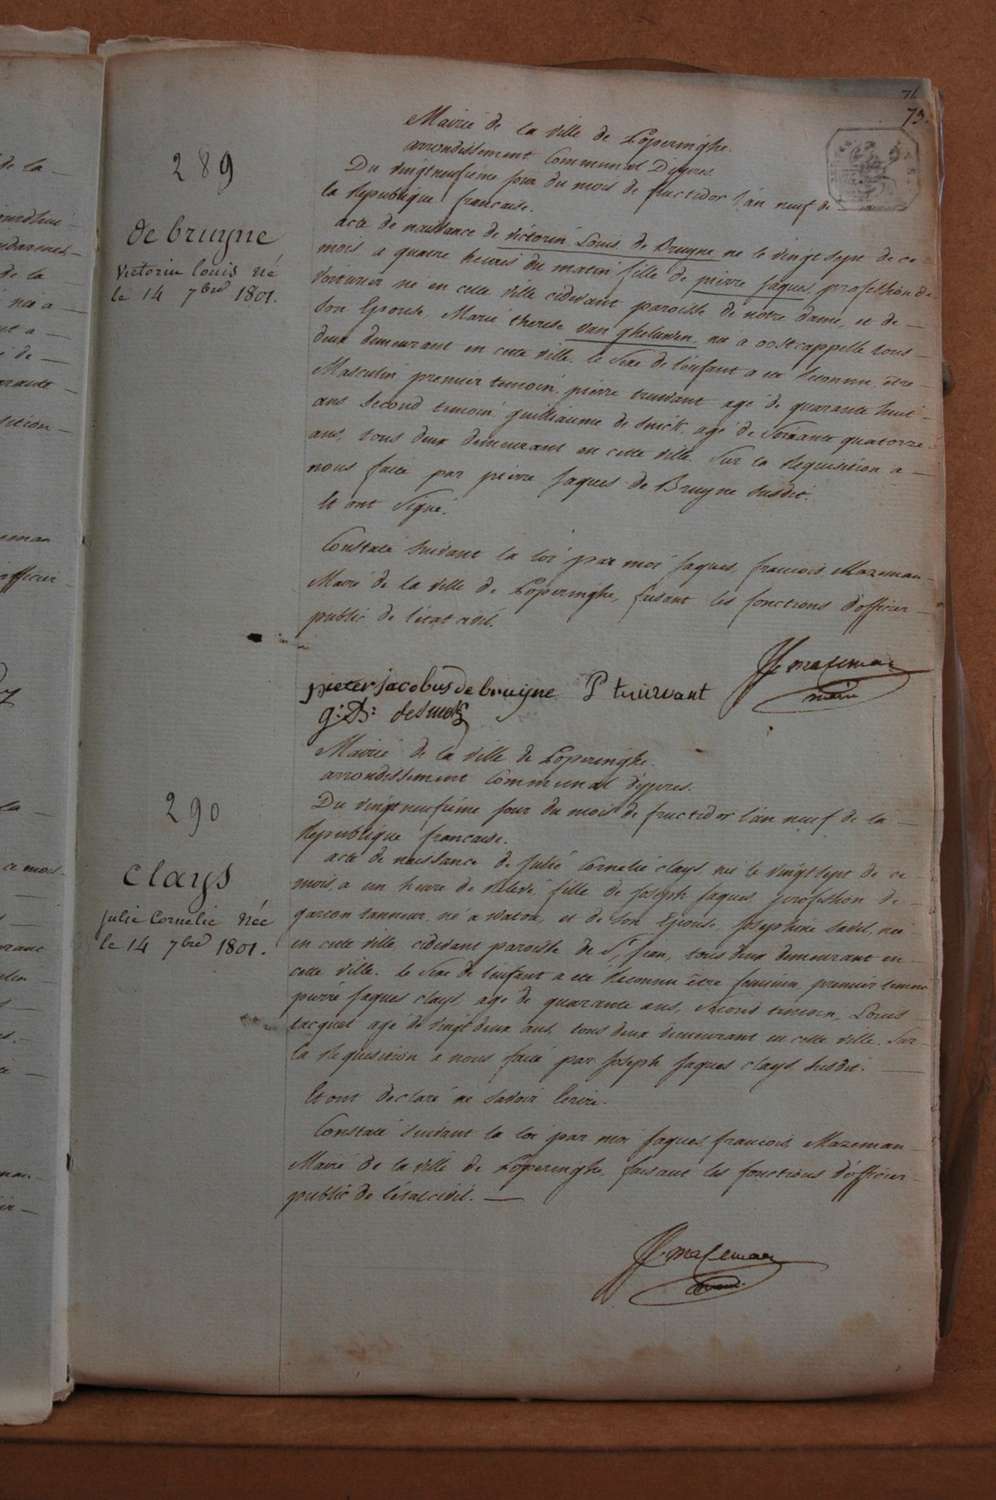 71
73.
289
de bruyne
Victorin louis né
le 14 7bre 1801.
Mairie de la ville de Poperinghe.
arrondissement Communal D'ypres
Du vingtneufième jour du mois de fructidor l'an neuf de
la Republique francaise.
acte de naissance de victorin Louis de Bruyne né le vingt sept de ce
mois a quatre heures du matin fille de pierre Jaques, profession de
voiturier né en cette ville cidevant paroisse de notre dame, et de
Son Epouse, Marie therese van gheluwen, née a oostcappelle tous
deux demeurant en cette ville. le Sexe de l'enfant a été Reconnu être
Masculin premier temoin pierre truwant agé de quarante huit
ans second temoin guilliaume de smick, agé de Soixante quatorze
ans, tous deux demeurant en cette ville. Sur la Requisition a
nous faite par pierre Jaques de Bruyne susdit.
Et ont Signé.
Constaté suivant la loi par moi Jaques, francois Mazeman
Maire de la ville de Poperinghe, faisant les fonctions d'officier
public de l'état civil.
JF mazeman
maire
pieter jacobus de bruijne P truwant
g: D: desmick
290
clays
julie Cornelie Née
le 14 7bre 1801.
Mairie de la ville de Poperinghe.
arrondissement Communal d'ypres.
Du vingtneufième jour du mois de fructidor l'an neuf de la
Republique francaise.
acte de naissance de Julie Cornelie clays née le vingt sept de ce
mois, a un heure de Relevé, fille de Joseph Jaques profession de
garcon tanneur, né a Watou, et de Son Epouse, Josephine née
en cette ville cidevant paroisse de St Jean, tous deux demeurant en
cette ville. le Sexe de l'enfant a été Reconnu être feminin, premier temoin
pierre Jaques clays, agé de quarante ans, second temoin, Louis
tacquet agé de vingt deux ans, tous deux demeurant en cette ville. Sur
la Requisition a nous faite par Joseph Jaques clays susdit.
Et ont declaré ne Savoir Ecrire.
Constaté suivant la loi par moi Jaques, francois, Mazeman
Maire de la ville de Poperinghe, faisant les fonctions d'officier
public de l'état civil.
JF mazeman
maire